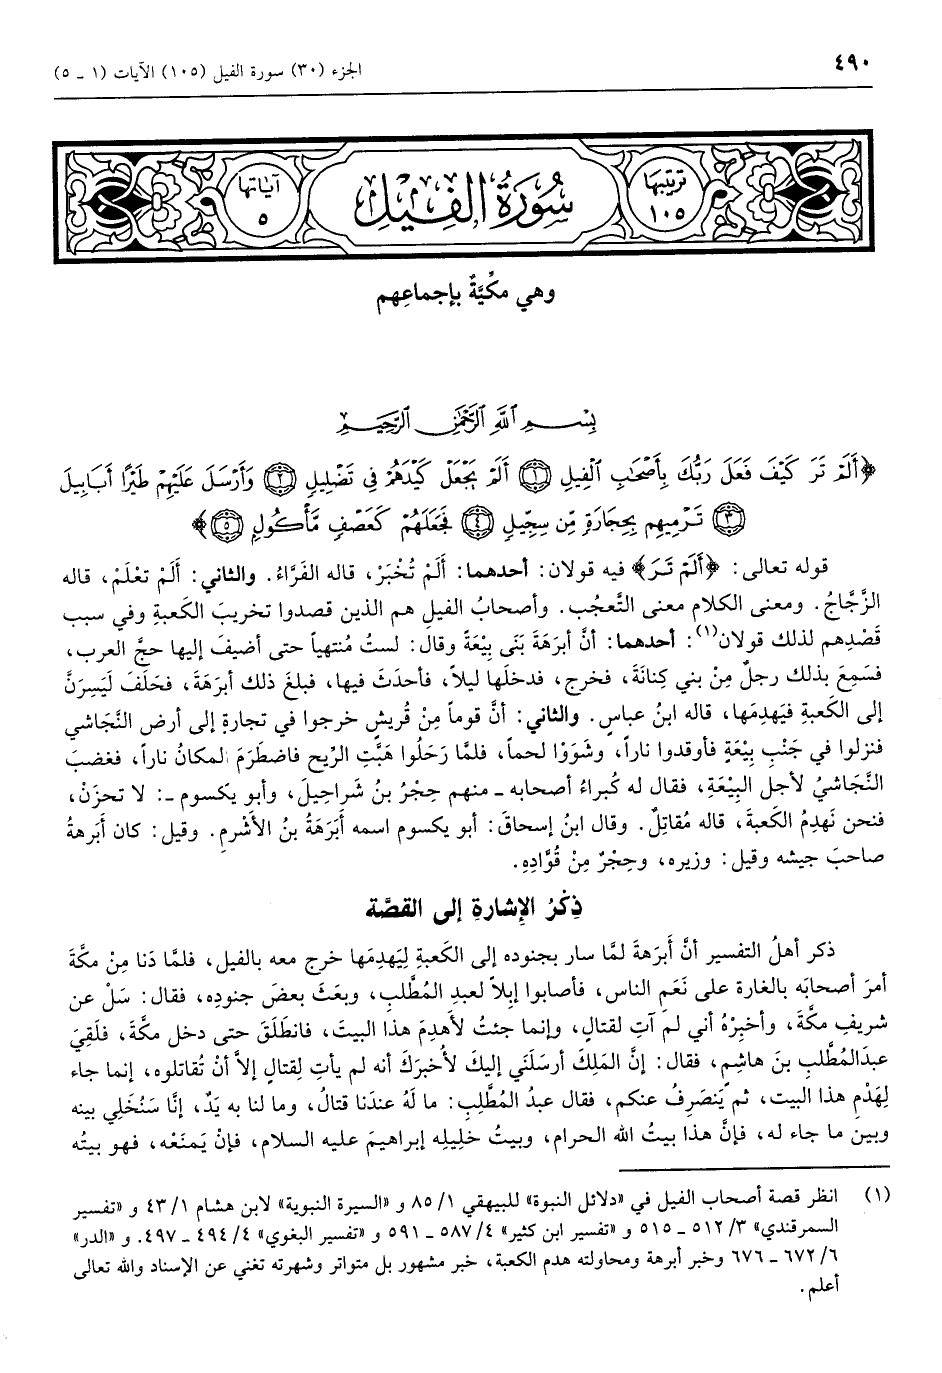 ٤٩٠
الجزء (٣٠) سورة الفيل (١٠٥) الآيات (١ ـ ٥)
ترتيبها ١٠٥
سُورَةُ الفِيلِ
آياتها ٥
وهي مكِّيَّةٌ بإجماعِهم
بِسْمِ اللَّهِ الرَّحْمَٰنِ الرَّحِيمِ
﴿أَلَمْ تَرَ كَيْفَ فَعَلَ رَبُّكَ بِأَصْحَٰبِ ٱلْفِيلِ ۝١ أَلَمْ يَجْعَلْ كَيْدَهُمْ فِى تَضْلِيلٍ ۝٢ وَأَرْسَلَ عَلَيْهِمْ طَيْرًا أَبَابِيلَ
۝٣ تَرْمِيهِم بِحِجَارَةٍ مِّن سِجِّيلٍ ۝٤ فَجَعَلَهُمْ كَعَصْفٍ مَّأْكُولٍ ۝٥﴾
قوله تعالى: ﴿أَلَمْ تَرَ﴾ فيه قولان: أحدهما: أَلَمْ تُخبَرْ، قاله الفَرَّاءُ. والثاني: أَلَمْ تعْلَمْ، قاله
الزَّجَّاجُ. ومعنى الكلام معنى التَّعجُب. وأصحابُ الفيلِ هم الذين قصدوا تخريبَ الكَعبةِ وفي سبب
قَصْدِهم لذلك قولان(١): أحدهما: أنَّ أبرهَةَ بَنَى بِيْعَةً وقال: لستُ مُنتهياً حتى أضيفَ إليها حجَّ العرب،
فسَمِعَ بذلك رجلٌ مِنْ بني كِنانَة، فخرج، فدخلَها ليلاً، فأحدَثَ فيها، فبلغَ ذلك أبرَهَةَ، فحَلَفَ لَيَسِرَنَّ
إلى الكَعبةِ فيَهدِمَها، قاله ابنُ عباسٍ. والثاني: أنَّ قوماً مِنْ قُريشٍ خرجوا في تجارةٍ إلى أرض النَّجاشي
فنزلوا في جَنْبِ بِيْعَةٍ فأوقدوا ناراً، وشَوَوْا لحماً، فلمَّا رَحَلُوا هَبَّتِ الرِّيح فاضطَرَمَ المكانُ ناراً، فغضبَ
النَّجاشيُ لأجلِ البِيْعَةِ، فقال له كُبراءُ أصحابه ـ منهم حِجْرُ بنُ شَراحِيلَ، وأبو يكسوم ـ: لا تحزَنْ،
فنحن نَهدِمُ الكَعبةَ، قاله مُقاتِلٌ. وقال ابنُ إسحاقَ: أبو يكسوم اسمه أَبرَهَةُ بنُ الأشْرمِ. وقيل: كان أبرهةُ
صاحبَ جيشه وقيل: وزيره، وحِجْرٌ مِنْ قُوَّادِهِ.
ذِكْرُ الإشارةِ إلى القصَّة
ذكر أهلُ التفسير أنَّ أَبرَهةَ لمَّا سار بجنوده إلى الكَعبةِ لِيَهدِمَها خرج معه بالفيل، فلمَّا دَنا مِنْ مكَّةَ
أمرَ أصحابَه بالغارة على نَعَمِ الناس، فأصابوا إبلاً لعبدِ المُطَّلبِ، وبعَثَ بعضَ جنودِه، فقال: سَلْ عن
شريفِ مكَّةَ، وأخبِرْهُ أني لم آتِ لقتالٍ، وإنما جئتُ لأهدِمَ هذا البيتَ، فانطَلَقَ حتى دخل مكَّةَ، فلَقِيَ
عبدَالمُطَّلبِ بنَ هاشِمٍ، فقال: إنَّ المَلِكَ أرسَلَني إليكَ لأُخبرَكَ أنه لم يأتِ لِقتالٍ إلاَّ أنْ تُقاتلوه، إنما جاء
لِهَدْمِ هذا البيت، ثم يَنصَرِفُ عنكم، فقال عبدُ المُطَّلِبِ: ما لَهُ عندَنا قتالٌ، وما لنا به يَدٌ، إنَّا سَنُخَلِي بينه
وبين ما جاء له، فإنَّ هذا بيتُ الله الحرام، وبيتُ خليلِه إبراهيمَ عليه السلام، فإنْ يَمنَعْه، فهو بيتُه
(١) انظر قصة أصحاب الفيل في «دلائل النبوة» للبيهقي ١/ ٨٥ و «السيرة النبوية» لابن هشام ١/ ٤٣ و «تفسير
السمرقندي» ٣/ ٥١٢ ـ ٥١٥ و «تفسير ابن كثير» ٤/ ٥٨٧ ـ ٥٩١ و «تفسير البغوي» ٤/ ٤٩٤ ـ ٤٩٧. و «الدر»
٦/ ٦٧٢ ـ ٦٧٦ وخبر أبرهة ومحاولته هدم الكعبة، خبر مشهور بل متواتر وشهرته تغني عن الإسناد والله تعالى
أعلم.